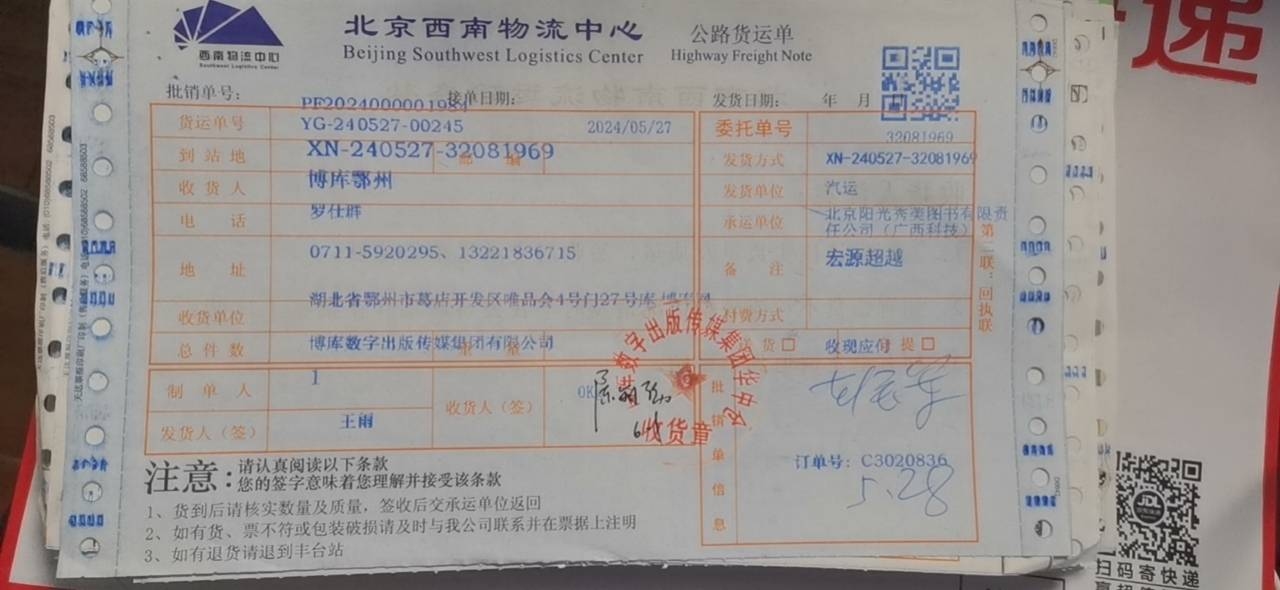 递
西南物流中心
Southwest Logistics Center
北京西南物流中心
Beijing Southwest Logistics Center
公路货运单
Highway Freight Note
批销单号:
PF2024000001984
接单日期:
发货日期: 年 月
32081969
货运单号 YG-240527-00245 2024/05/27 委托单号
到站地 XN-240527-32081969 邮编 发货方式 XN-240527-32081969
收货人 博库鄂州 发货单位 汽运
电话 罗仕群 承运单位 北京阳光秀美图书有限责
任公司(广西科技)
地址 0711-5920295、13221836715 备注 宏源超越
湖北省鄂州市葛店开发区唯品会4号门27号库
收货单位 付费方式
总件数 博库数字出版传媒集团有限公司 送货□ 收现应付 提□
制单人 1 收货人(签) OK
发货人(签) 王雨
数字出版传媒集团华中
收货章
批销单信息
订单号: C3020836
5.28
第二联:回执联
注意:请认真阅读以下条款
您的签字意味着您理解并接受该条款
1、货到后请核实数量及质量,签收后交承运单位返回
2、如有货、票不符或包装破损请及时与我公司联系并在票据上注明
3、如有退货请退到丰台站
JDL
扫码寄快递